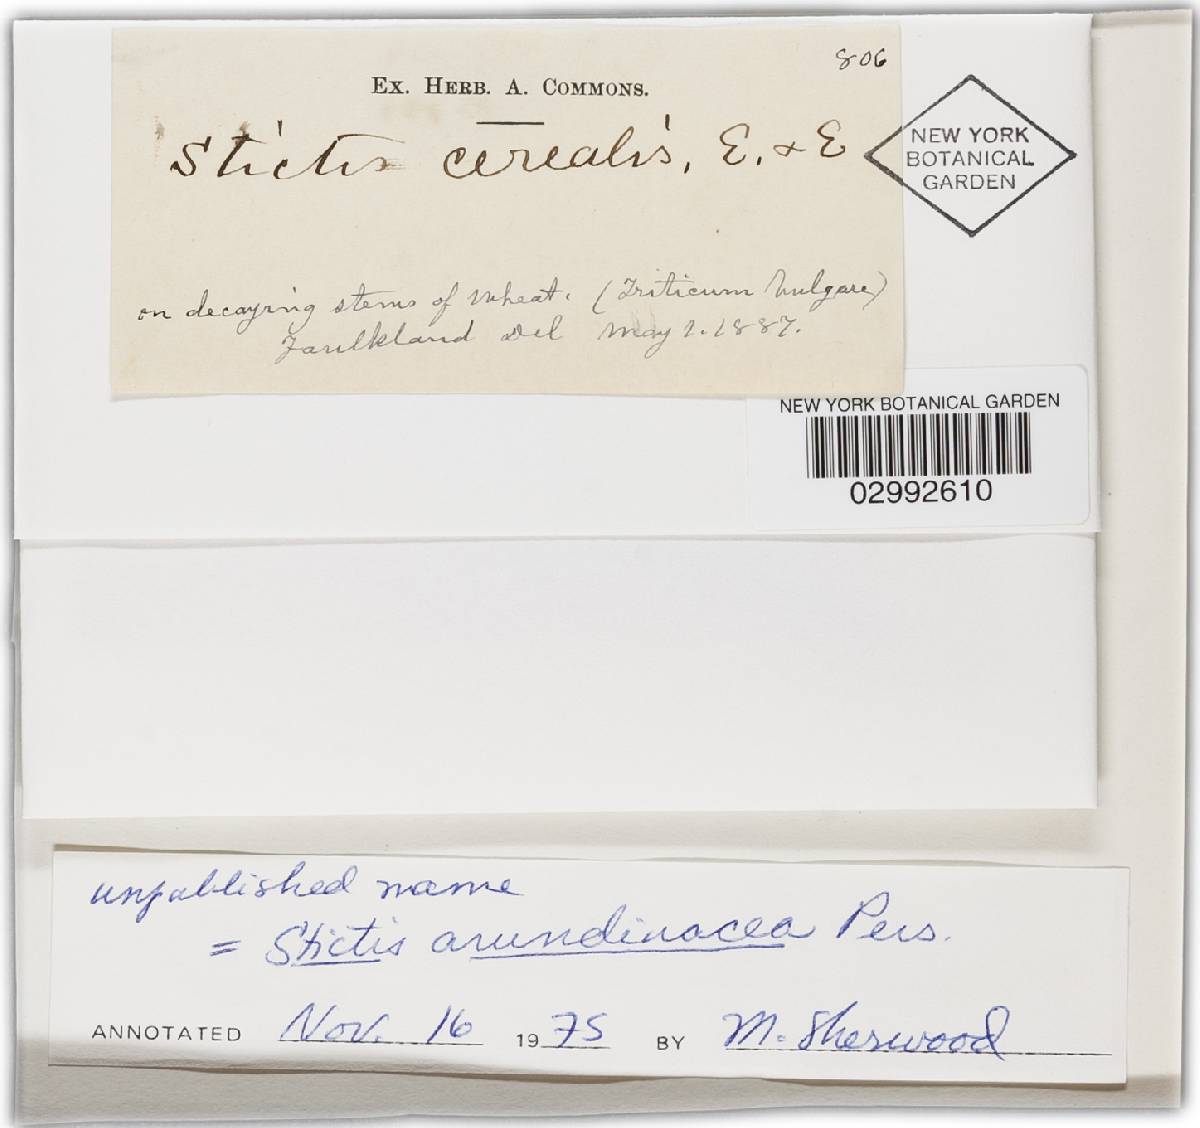 806
EX. HERB. A. COMMONS.
Stictis cerealis, E. & E
on decaying stems of Wheat. (Triticum Vulgare)
Faulkland Del May 1. 1887.
NEW YORK
BOTANICAL
GARDEN
NEW YORK BOTANICAL GARDEN
02992610
unpublished name
= Stictis arundinacea Pers.
ANNOTATED Nov. 16 1975 BY M. Sherwood